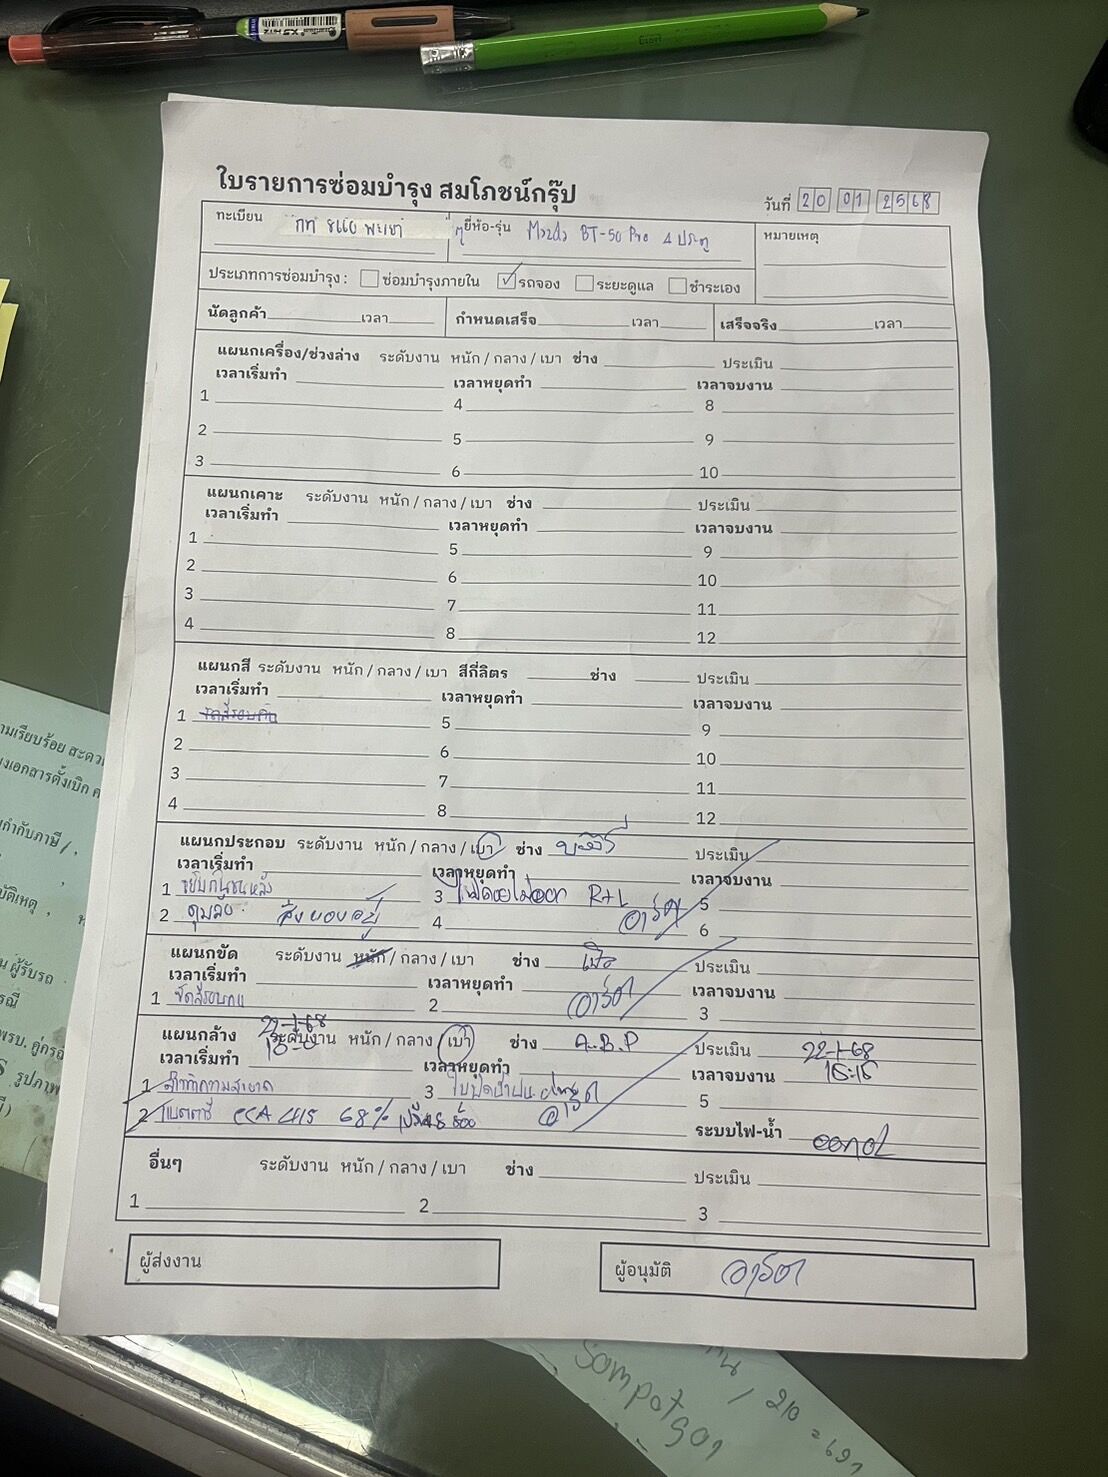 ใบรายการซ่อมบำรุง สมโภชน์กรุ๊ป
วันที่ 20 01 2568
ทะเบียน พะเยา
ยี่ห้อ-รุ่น Mazda BT-50 Pro 4 ประตู
หมายเหตุ
ประเภทการซ่อมบำรุง : ซ่อมบำรุงภายใน ✓ รถจอง ระยะดูแล ชำระเอง
นัดลูกค้า เวลา กำหนดเสร็จ เวลา เสร็จจริง เวลา
แผนกเครื่อง/ช่วงล่าง ระดับงาน หนัก / กลาง / เบา ช่าง ประเมิน
เวลาเริ่มทำ เวลาหยุดทำ เวลาจบงาน
1 4 8
2 5 9
3 6 10
แผนกเคาะ ระดับงาน หนัก / กลาง / เบา ช่าง ประเมิน
เวลาเริ่มทำ เวลาหยุดทำ เวลาจบงาน
1 5 9
2 6 10
3 7 11
4 8 12
แผนกสี ระดับงาน หนัก / กลาง / เบา สีกี่ลิตร ช่าง ประเมิน
เวลาเริ่มทำ เวลาหยุดทำ เวลาจบงาน
1 ขัดสีรอบคัน 5 9
2 6 10
3 7 11
4 8 12
แผนกประกอบ ระดับงาน หนัก / กลาง / เบา ช่าง ประเมิน
เวลาเริ่มทำ เวลาหยุดทำ เวลาจบงาน
1 ขยับกันชนหลัง 3 R+L 5
2 ดุมล้อ สั่งของอยู่ 4 อาร์ต 6
แผนกขัด ระดับงาน หนัก / กลาง / เบา ช่าง ประเมิน
เวลาเริ่มทำ เวลาหยุดทำ เวลาจบงาน
1 2 อาร์ต 3
แผนกล้าง ระดับงาน หนัก / กลาง / เบา ช่าง A.B.P ประเมิน 22-1-68
เวลาเริ่มทำ เวลาหยุดทำ เวลาจบงาน 15:15
1 ล้างทำความสะอาด 3 ใบปัดน้ำฝน 5
2 แบตตารี่ CCA 415 68% อาร์ต ระบบไฟ-น้ำ
อื่นๆ ระดับงาน หนัก / กลาง / เบา ช่าง ประเมิน
1 2 3
ผู้ส่งงาน
ผู้อนุมัติ อาร์ต